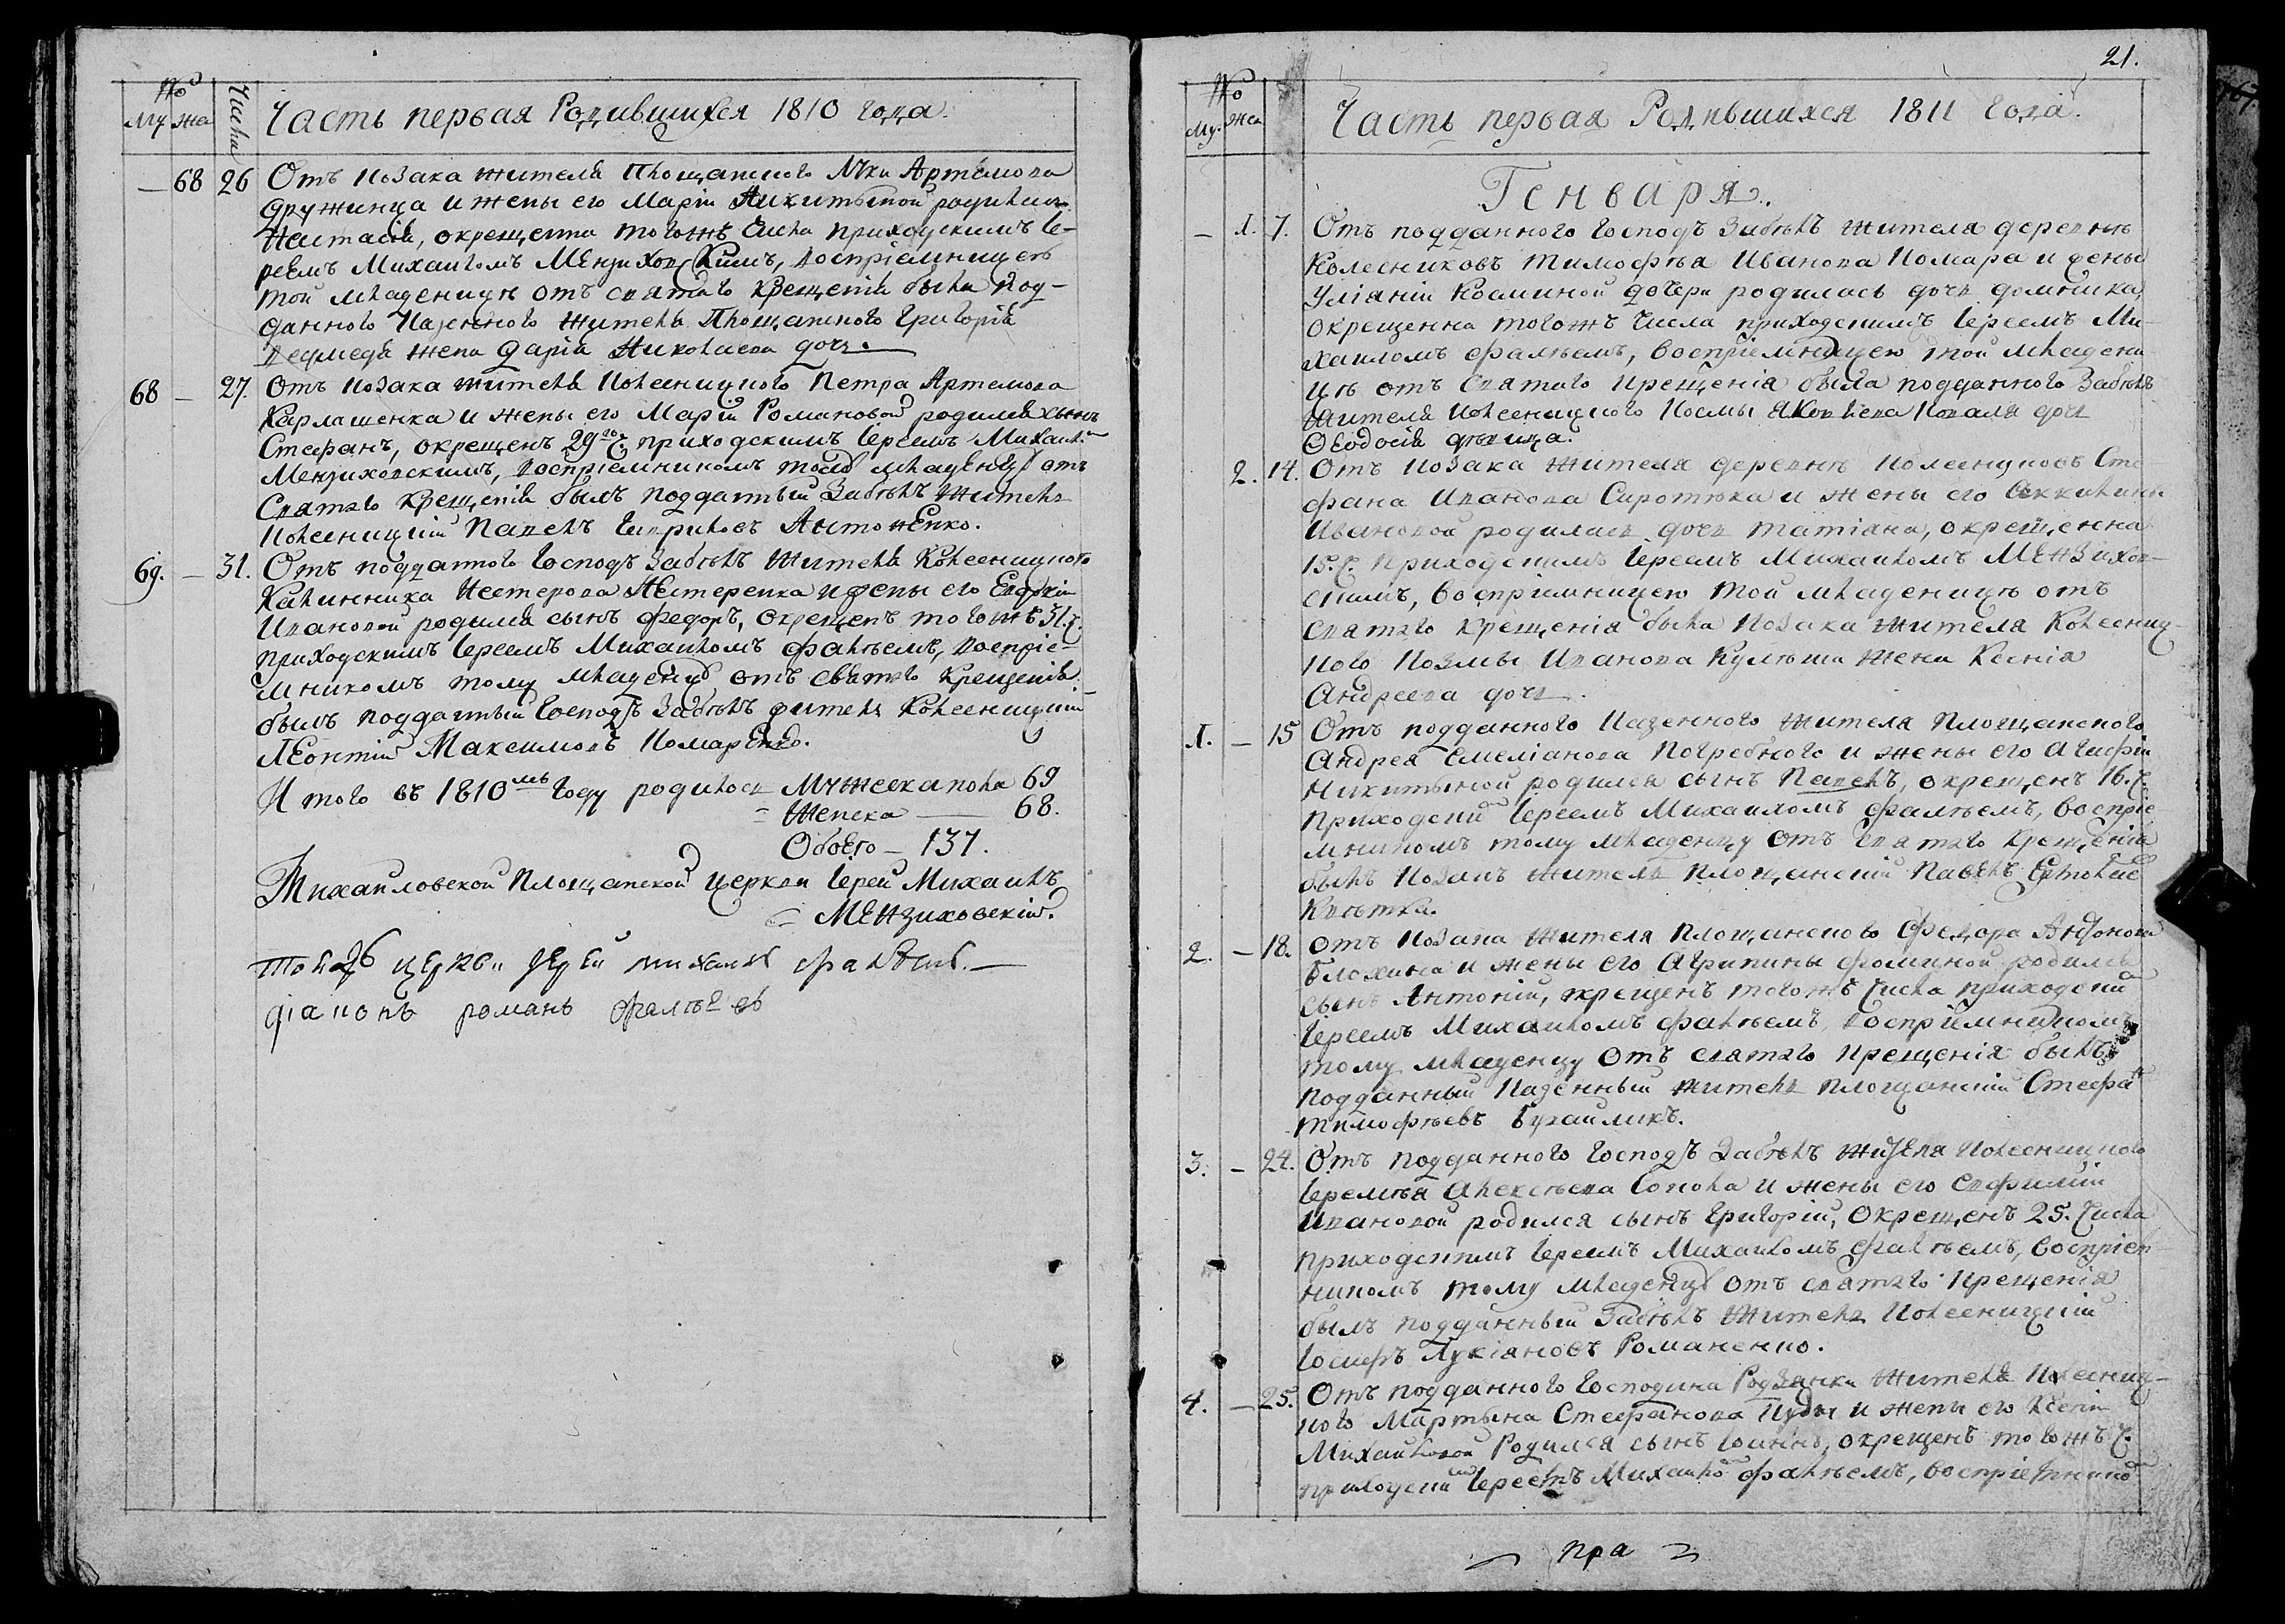 №
Му же Числа Часть первая Родившихся 1810 года.
— 68 26 Отъ козака жителя Площанского Луки Артемова
Дружинца и жены его Маріи Никитиной родилась
Настасія, окрещенна тогожъ числа приходскимъ Іе-
реемъ Михаиломъ Мензиховскимъ, воспріемницею
той младеницы отъ святаго крещенія была под-
данного Казенного жителя Площанского Григорія
жена Дарія Николаева дочь.
68 — 27. Отъ козака жителя Колесницкого Петра Артемова
Карлашенка и жены его Маріи Романовой родился сынъ
Стефанъ, окрещенъ 29го ч. приходскимъ Іереемъ Михаил.
Мензиховскимъ, воспріемникомъ тому младенцу отъ
Святаго крещенія былъ подданный Забѣлъ житель
Колесницкій Павелъ Гавриловъ Антоненко.
69. — 31. Отъ подданного Господъ Забѣлъ жителя Колесницкого
Калинника Нестерова Нестеренка и жены его Евдокіи
Ивановой родился сынъ Федоръ, окрещенъ тогожъ 31. ч.
приходскимъ Іереемъ Михаиломъ Фалѣемъ, воспріе-
мникомъ тому младенцу отъ святаго крещенія
былъ подданный Господъ Забѣлъ житель Колесницкій
Леонтій Максимовъ Комаренко.
Итого въ 1810мъ году родилось Мужеска пола 69
= Женска — 68.
Обоего — 137.
Михаиловской Площанской церкви Іерей Михаилъ
= Мензиховскій.
Той церкви Іерей михаил фалѣевъ. —
діаконъ романъ фалѣевъ
21.
№
Му. Же Часть первая Родившихся 1811 года.
Генваря.
— 1. 7. Отъ подданного Господъ Забѣлъ жителя деревни
Колесниковъ Тимофѣа Иванова Комара и жены
Уліаніи Косминой дочери родилась дочь Домникіа,
окрещенна тогожъ числа приходскимъ Іереемъ Ми-
хаиломъ Фалѣемъ, воспріемницею той младени
цѣ отъ святаго крещенія была подданного Забѣлъ
жителя Колесницкого Космы Яковлева Коваля дочь
Феодосія дѣвица.
2. 14. Отъ козака жителя деревни Колесниковъ Сте
фана Иванова Сиротюка и жены его
Ивановой родилась дочь Татіана, окрещенна
15. ч. приходскимъ Іереемъ Михаиломъ Мензихов-
скимъ, воспріемницею той младеницѣ отъ
святаго крещенія была козака жителя Колесниц-
кого Козмы Иванова Кулѣша жена Ксенія
Андреева дочь.
1. — 15 Отъ подданного Казенного жителя Площанского
Андрея Емеліанова Погребного и жены его Агафіи
Никитиной родился сынъ Павелъ, окрещенъ 16. ч.
приходскій Іереемъ Михаиломъ Фалѣемъ, воспріе
мникомъ тому младенцу отъ святаго крещенія
былъ козакъ житель Площанскій Павелъ
Квѣтка.
2. — 18. Отъ козака жителя Площанского Федора Антонова
Блохина и жены его Агрипины Фоминой родился
сынъ Антоній, окрещенъ тогожъ числа приходскій
Іереемъ Михаиломъ Фалѣемъ, воспріемникомъ
тому младенцу отъ святаго крещенія былъ
подданный Казенный житель Площанскій Стефан
Тимофѣевъ Бугаиликъ.
3. — 24. Отъ подданного Господъ Забѣлъ жителя Колесницкого
Іеремѣя Алексѣева Сокола и жены его Евфиміи
Ивановой родился сынъ Григорій, окрещенъ 25. числа
приходскимъ Іереемъ Михаиломъ Фалѣемъ, воспріем
никомъ тому младенцу отъ святаго крещенія
былъ подданный Забѣлъ житель Колесницкій
Іосифъ Лукіановъ Романенко.
4. — 25. Отъ подданного Господина Родзянки жителя Колесниц-
кого Мартына Стефанова Куды и жены его Ксеніи
Михаиловой Родился сынъ Іоаннъ, окрещенъ тогожъ ч.
приходскимъ Іереемъ Михаило Фалѣемъ, воспріемнико
пра